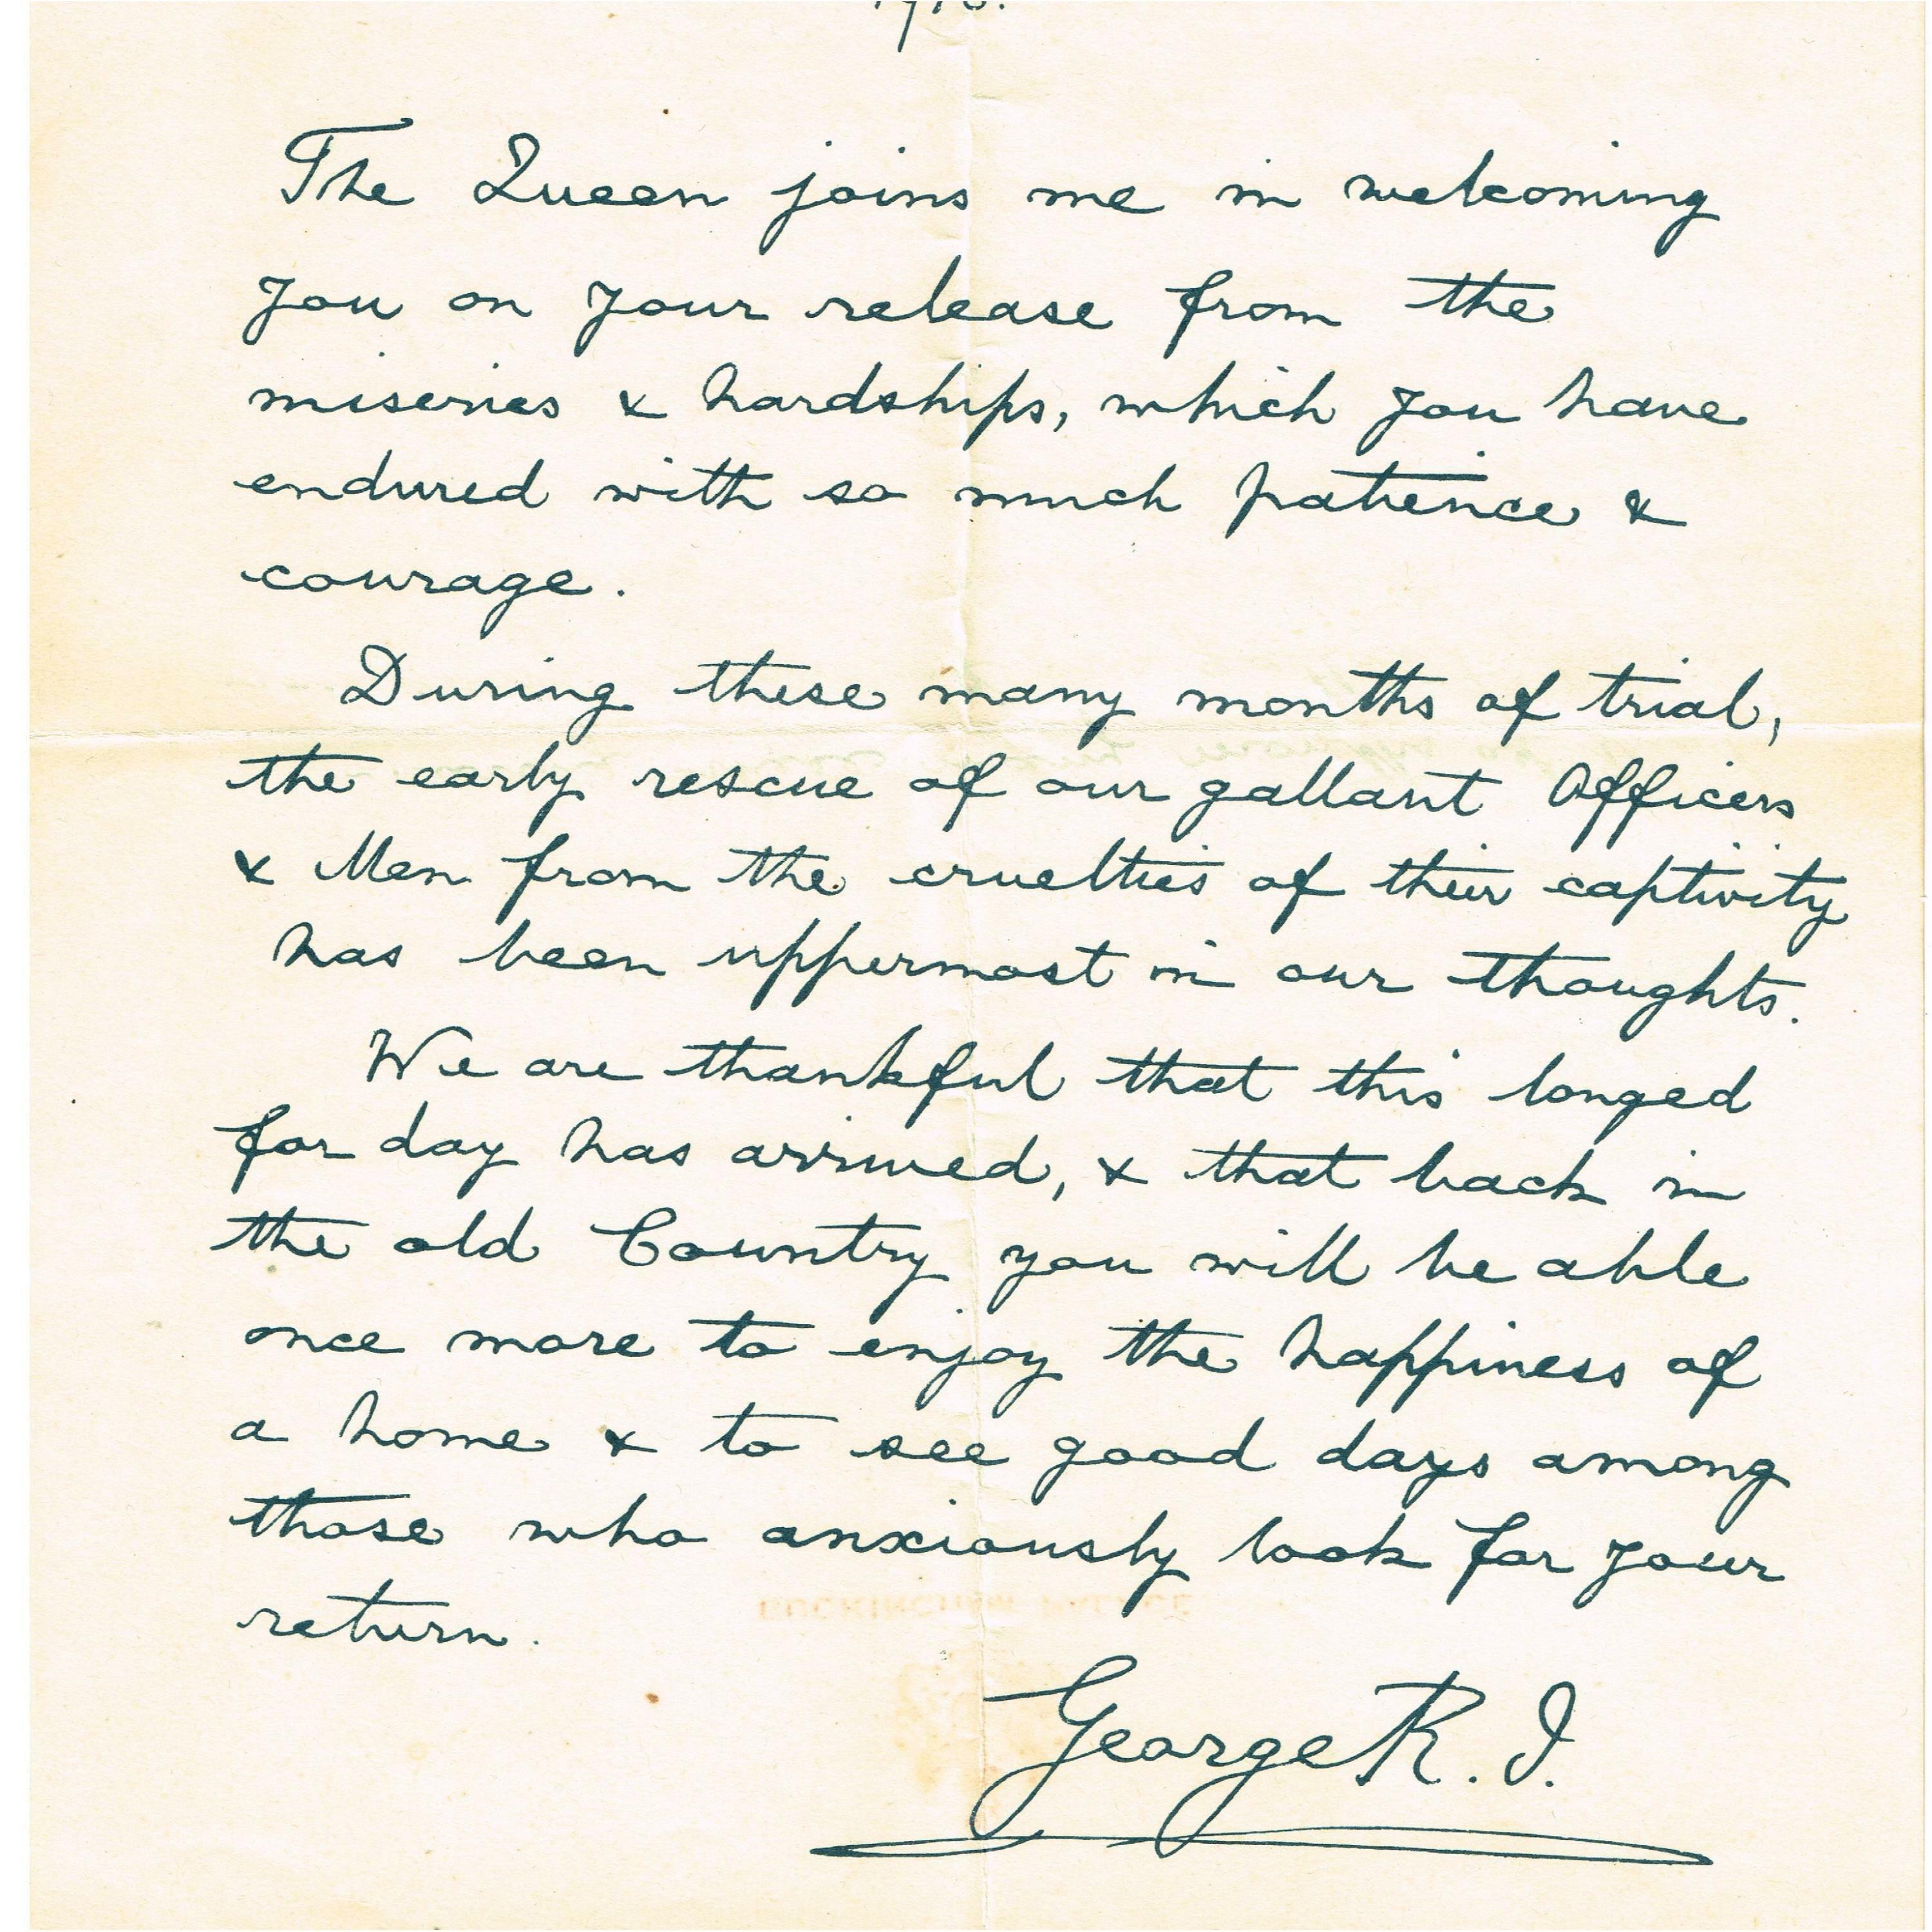 1918.
The Queen joins me in welcoming
you on your release from the
miseries & hardships, which you have
endured with so much patience &
courage.
During these many months of trial,
the early rescue of our gallant Officers
& Men from the cruelties of their captivity
has been uppermost in our thoughts.
We are thankful that this longed
for day has arrived, & that back in
the old Country you will be able
once more to enjoy the happiness of
a home & to see good days among
those who anxiously look for your
return.
BUCKINGHAM PALACE
George R. I.